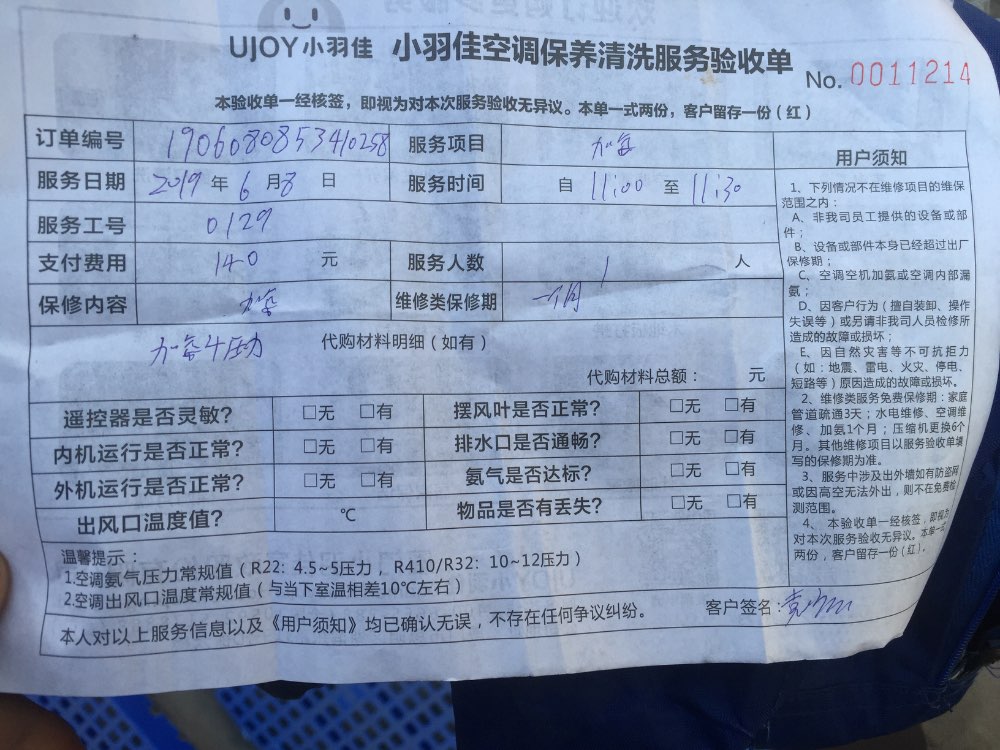 UJOY小羽佳 小羽佳空调保养清洗服务验收单
No. 0011214
本验收单一经核签，即视为对本次服务验收无异议。本单一式两份，客户留存一份（红）
订单编号 1906080853410258 服务项目 加氨
服务日期 2019 年 6 月 8 日 服务时间 自 11:00 至 11:30
服务工号 0129
支付费用 140 元 服务人数 1 人
保修内容 加氨 维修类保修期 一个月
加氨4压力 代购材料明细（如有）
代购材料总额： 元
遥控器是否灵敏? □无 □有 摆风叶是否正常? □无 □有
内机运行是否正常? □无 □有 排水口是否通畅? □无 □有
外机运行是否正常? □无 □有 氨气是否达标? □无 □有
出风口温度值? ℃ 物品是否有丢失? □无 □有
温馨提示：
1.空调氨气压力常规值（R22: 4.5~5压力，R410/R32: 10~12压力）
2.空调出风口温度常规值（与当下室温相差10℃左右）
本人对以上服务信息以及《用户须知》均已确认无误，不存在任何争议纠纷。 客户签名:
用户须知
1、下列情况不在维修项目的维保
范围之内：
A、非我司员工提供的设备或部
件；
B、设备或部件本身已经超过出厂
保修期；
C、空调空机加氨或空调内部漏
氨；
D、因客户行为（擅自装卸、操作
失误等）或另请非我司人员检修所
造成的故障或损坏；
E、因自然灾害等不可抗拒力
（如：地震、雷电、火灾、停电、
短路等）原因造成的故障或损坏。
2、维修类服务免费保修期：家庭
管道疏通3天；水电维修、空调维
修、加氨1个月；压缩机更换6个
月。其他维修项目以服务验收单填
写的保修期为准。
3、服务中涉及出外墙如有防盗网
或因高空无法外出，则不在免费检
测范围。
4、本验收单一经核签，即视为
对本次服务验收无异议。本单一式
两份，客户留存一份（红）。